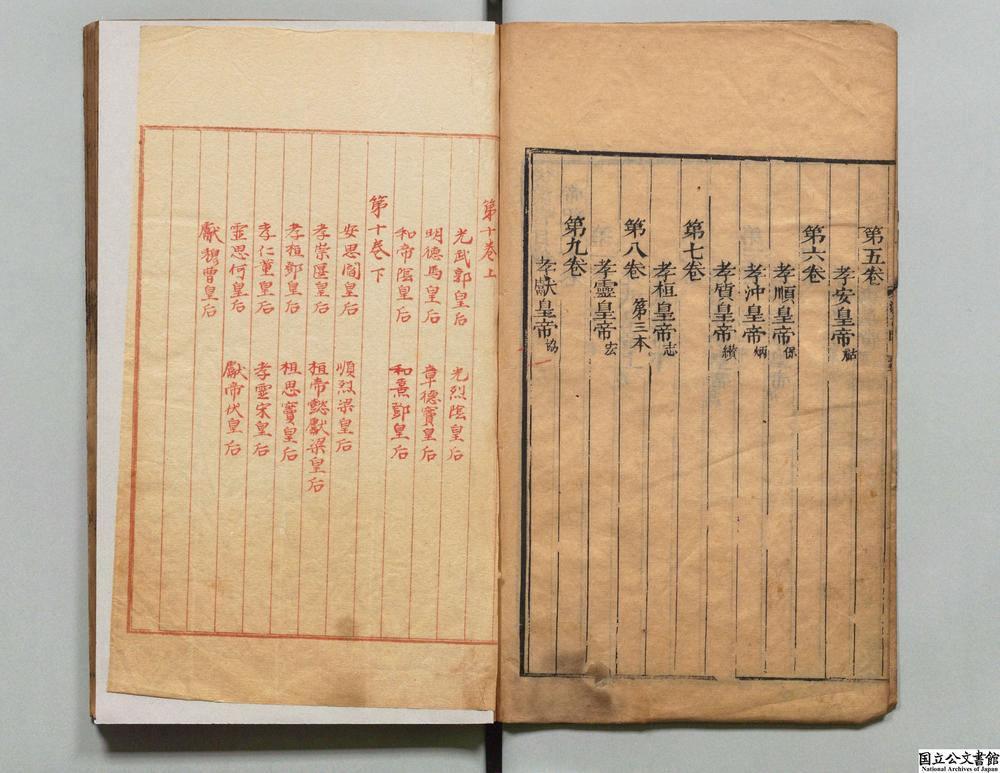 第五卷
孝安皇帝祜
第六卷
孝順皇帝保
孝沖皇帝炳
孝質皇帝纘
第七卷
孝桓皇帝志
第八卷 第三本
孝靈皇帝宏
第九卷
孝獻皇帝協
第十卷上
光武郭皇后 光烈陰皇后
明德馬皇后 章德竇皇后
和帝陰皇后 和熹鄧皇后
第十卷下
安思閻皇后 順烈梁皇后
孝崇匽皇后 桓帝懿獻梁皇后
孝桓鄧皇后 桓思竇皇后
孝仁董皇后 孝靈宋皇后
靈思何皇后 獻帝伏皇后
獻穆曹皇后
国立公文書館
National Archives of Japan